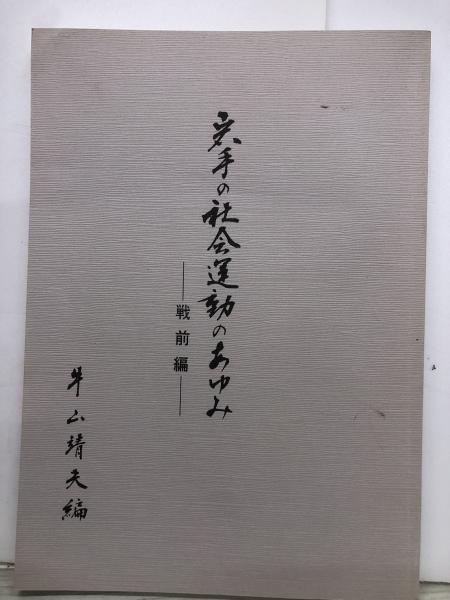 岩手の社会運動のあゆみ
―戦前編―
牛山靖夫編